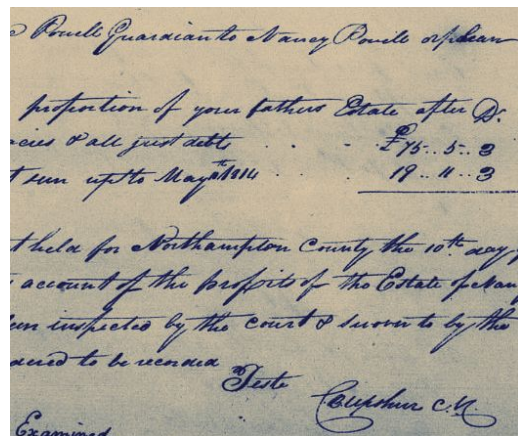 Powell Guardian to Nancy Powell orphan
proportion of your fathers Estate after D.
cies & all just debts . . . £75..5..3
t sum up to May 1814 19..11..3
t held for Northampton County the 10th day
account of the profits of the Estate of Nan
en inspected by the Court & sworn to by the
dered to be recorded
Teste
C Upshur C.N.
Examined